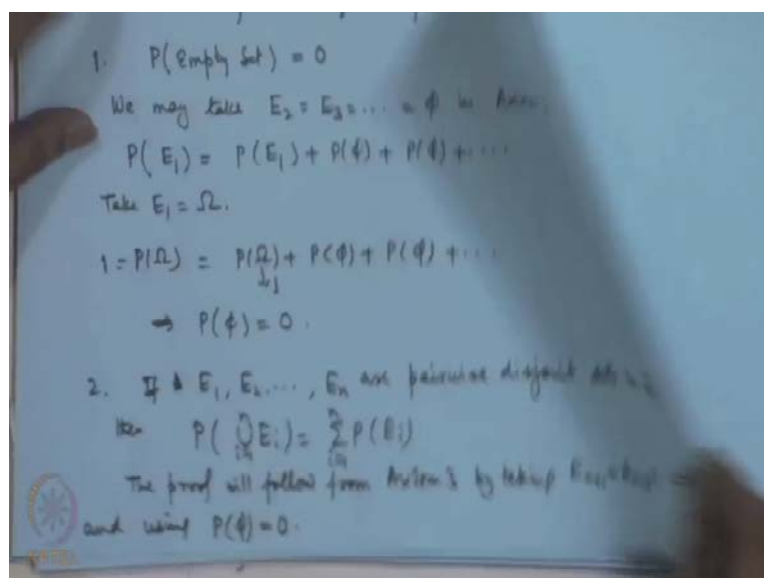 1. P(Empty Set) = 0
We may take E₂ = E₃ = ... = ϕ in
P(E₁) = P(E₁) + P(ϕ) + P(ϕ) + ...
Take E₁ = Ω.
1 = P(Ω) = P(Ω) + P(ϕ) + P(ϕ) + ...
↓1
→ P(ϕ) = 0.
2. If E₁, E₂, ..., Eₙ are pairwise disjoint
then P(⋃ᵢ₌₁ⁿ Eᵢ) = ∑ᵢ₌₁ⁿ P(Eᵢ)
The proof will follow from Axiom 3 by taking
and using P(ϕ) = 0.